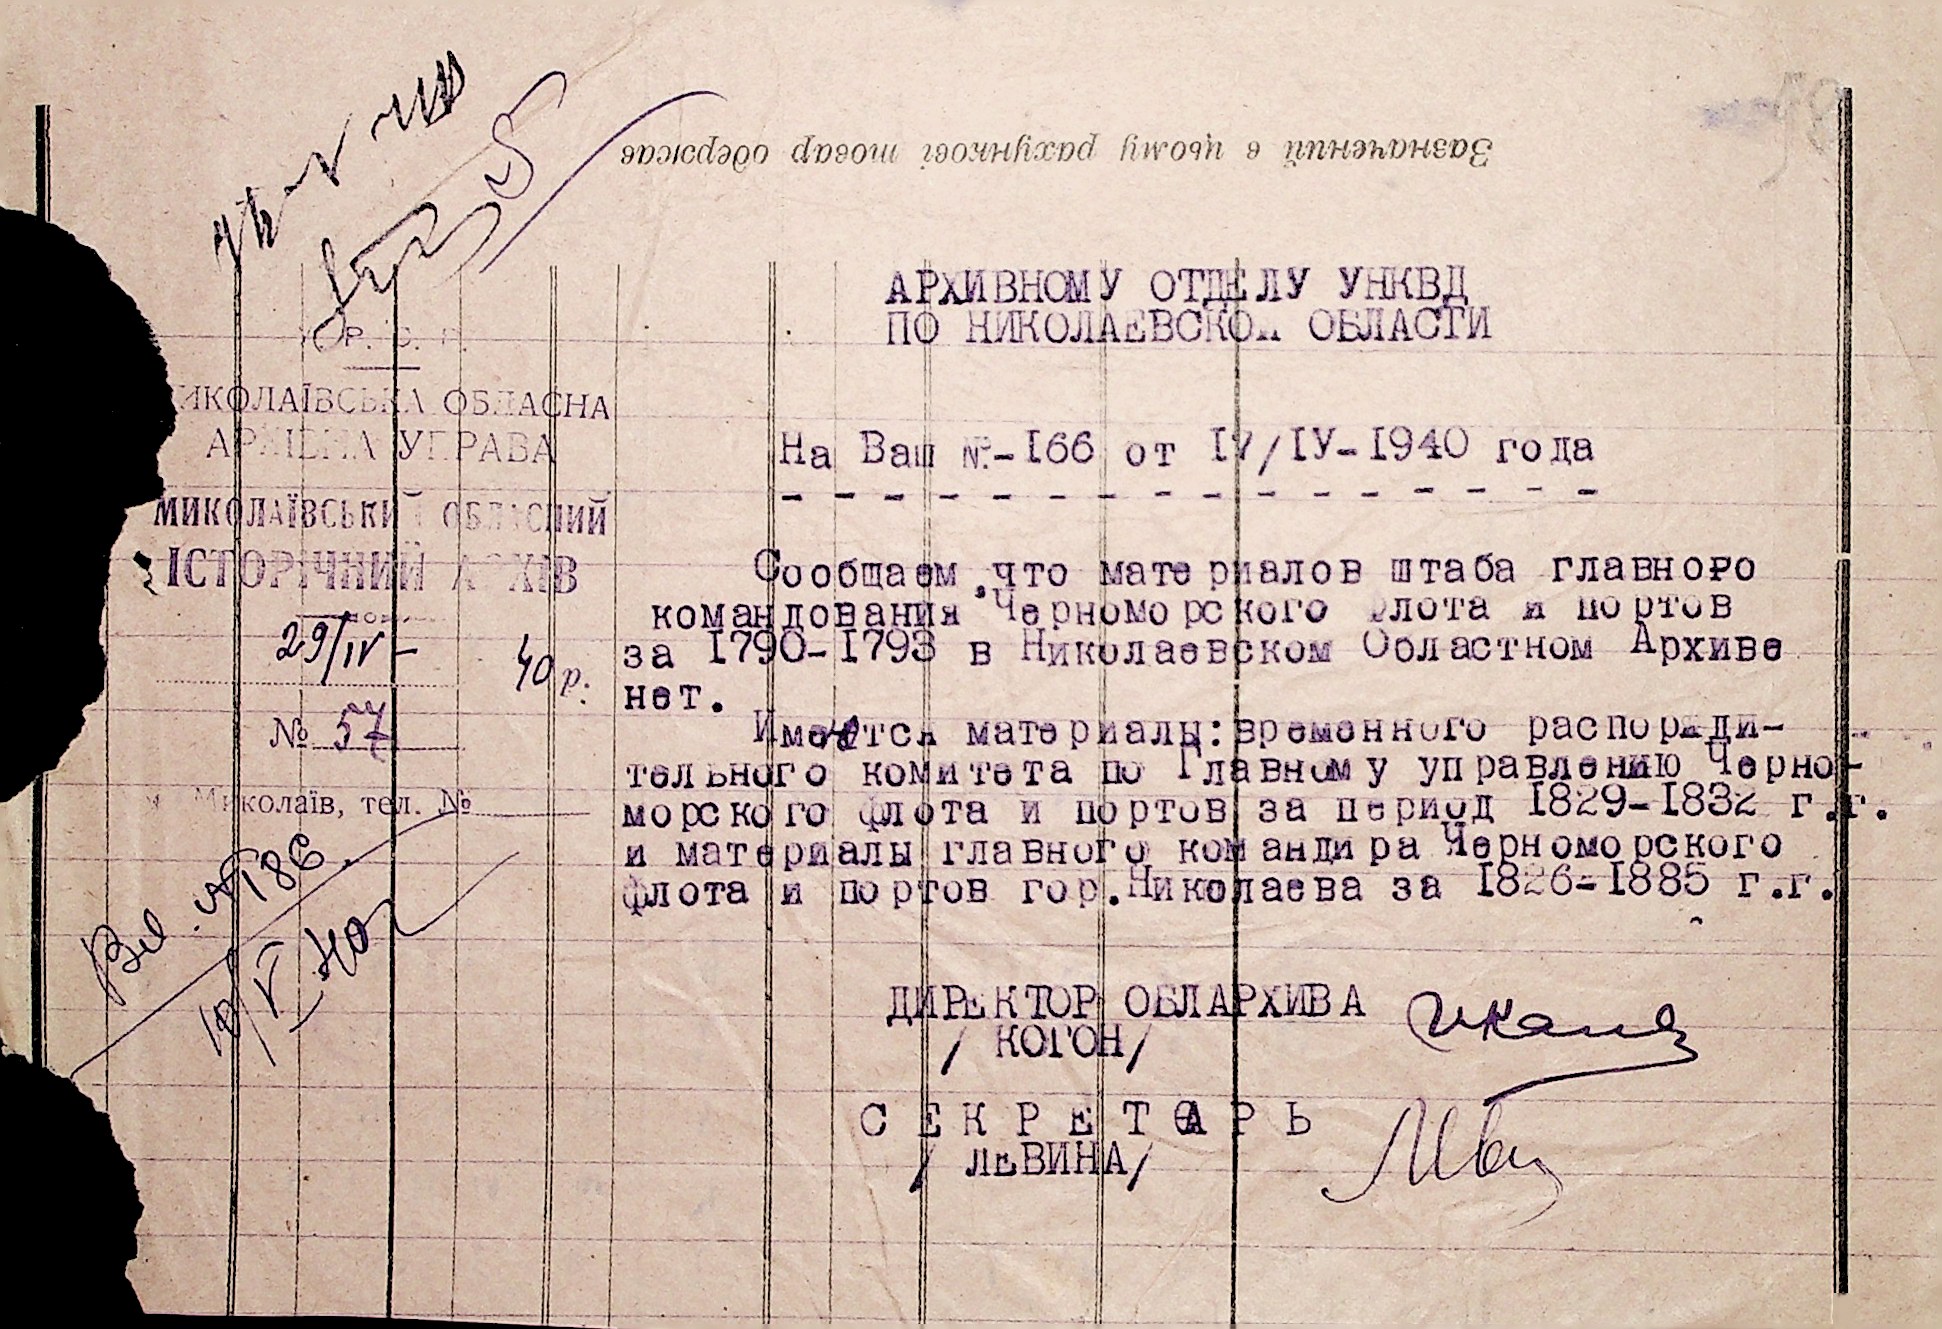 Зазначений в цьому рахункові товар одержав
АРХИВНОМУ ОТДЕЛУ УНКВД
ПО НИКОЛАЕВСКОЙ ОБЛАСТИ
У.С.Р.Р.
МИКОЛАЇВСЬКА ОБЛАСНА
АРХІВНА УПРАВА
МИКОЛАЇВСЬКИЙ ОБЛАСНИЙ
ІСТОРІЧНИЙ АРХІВ
29/IV - 40 р.
№ 57
м. Миколаїв, тел. №
Вх. №186
10/V-40
На Ваш №-166 от 1У/1У-1940 года
- - - - - - - - - - - - - - - -
Сообщаем,что материалов штаба главного
командования Черноморского флота и портов
за 1790-1793 в Николаевском Областном Архиве
нет.
Имеются материалы:временного распоряди-
тельного комитета по Главному управлению Черно-
морского флота и портов за период 1829-1832 г.г.
и материалы главного командира Черноморского
флота и портов гор.Николаева за 1826-1885 г.г.
ДИРЕКТОР ОБЛАРХИВА
/ КОГОН/
СЕКРЕТАРЬ
/ ЛЕВИНА/